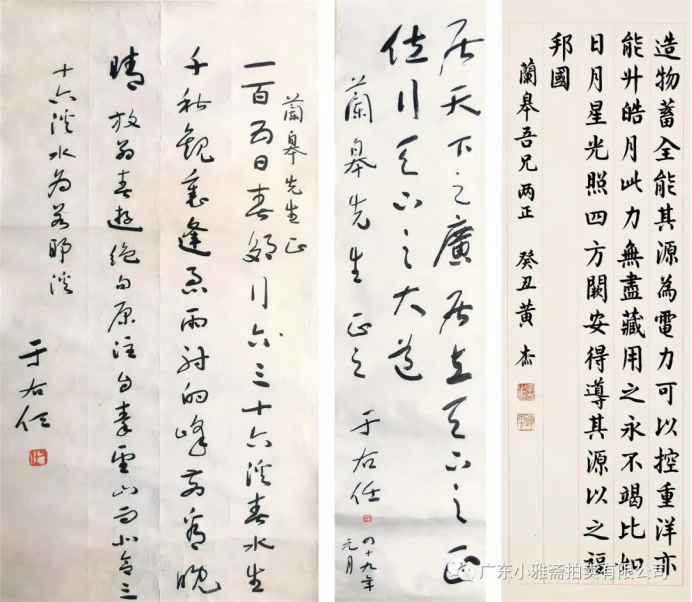 造物蓄全能其源為電力可以控重洋亦
能升皓月此力無盡藏用之永不竭比如
日月星光照四方闕安得導其源以之福
邦國
蘭皋吾兄两正 癸丑黄杰
居天下之廣居立天下之正
位行天下之大道
蘭皋先生正之
于右任
四十九年
元月
蘭皋先生正
一百五日春郊行三十六溪春水生
千秋觀裏逢急雨射的峰前看晚
晴 放翁春遊絕句原注自秦望山而北合三
十六溪水為若耶溪
于右任
广东小雅斋拍卖有限公司